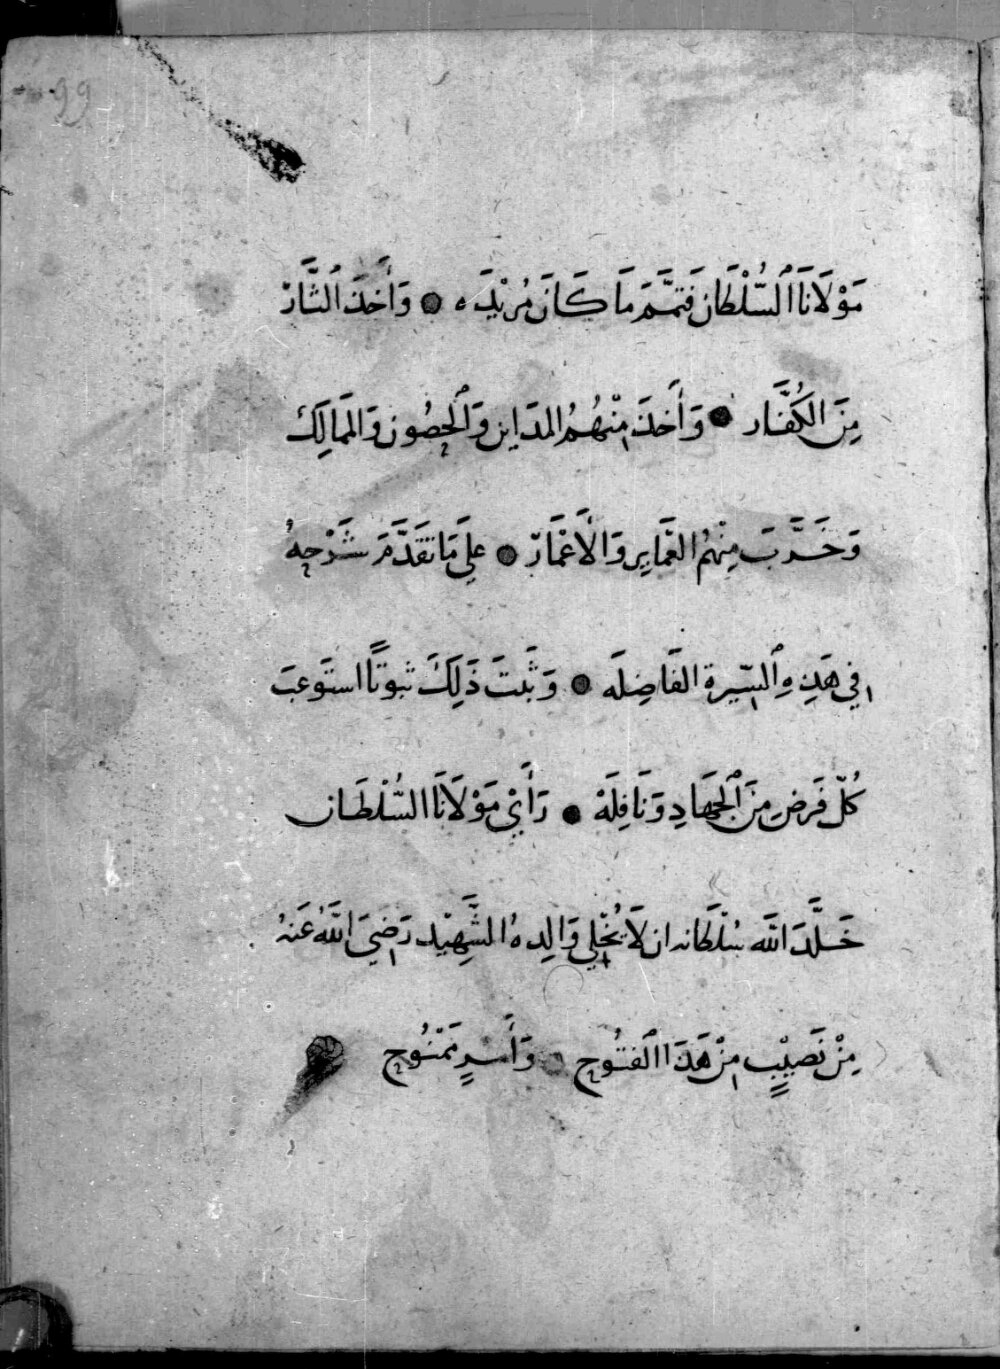 99
مَوْلَانَا ٱلسُّلْطَان فَتمَّمَ مَا كَانَ مُرِيْدَه ● وَأَخَذَ ٱلثَّارْ
مِنَ الكُفَّار ● وَأَخذَ مِنْهُمُ المدَاين وَٱلحِصُون وَالمَمالِكَ
وَخَرَّبَ مِنْهُمُ العَمَاير وَالأَعْمَارْ ● علَى مَا تقَدَّمَ شَرْحِهُ
فِي هَذِهِ ٱلسِّيرة الفَاضِلَه ● وَثَبتَ ذَلِكَ ثبوتًا استَوعبَ
كُلّ فَرضٍ مِنَ ٱلجِهَادِ وَنَافِلَهْ ● رَأَيْ مَوْلَانَا السُّلْطَان
خَلَّدَ اللَّه سُلْطَانه ان لَا يُخْلِي وَالِدهُ الشَّهِيْد رَضِيَ اللَّهُ عَنهُ
مِنْ نَصِيْبٍ مِنْ هَذَا ٱلفتُوحِ ● وَأَسْرٍ مَمْنُوحٍ